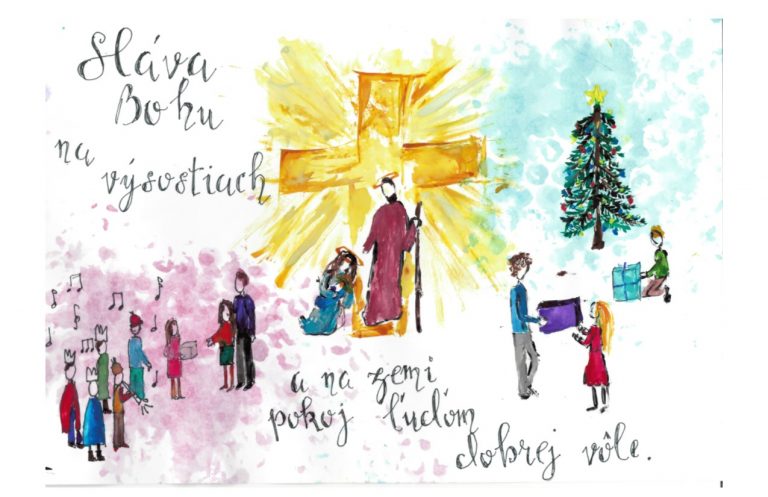 Sláva
Bohu
na
výsostiach
a na zemi
pokoj ľuďom
dobrej vôle.